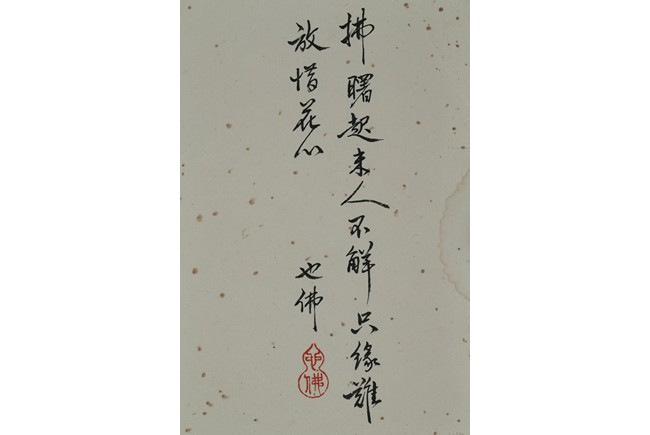 拂曙起来人不解只缘難
放惜花心
也佛
也佛